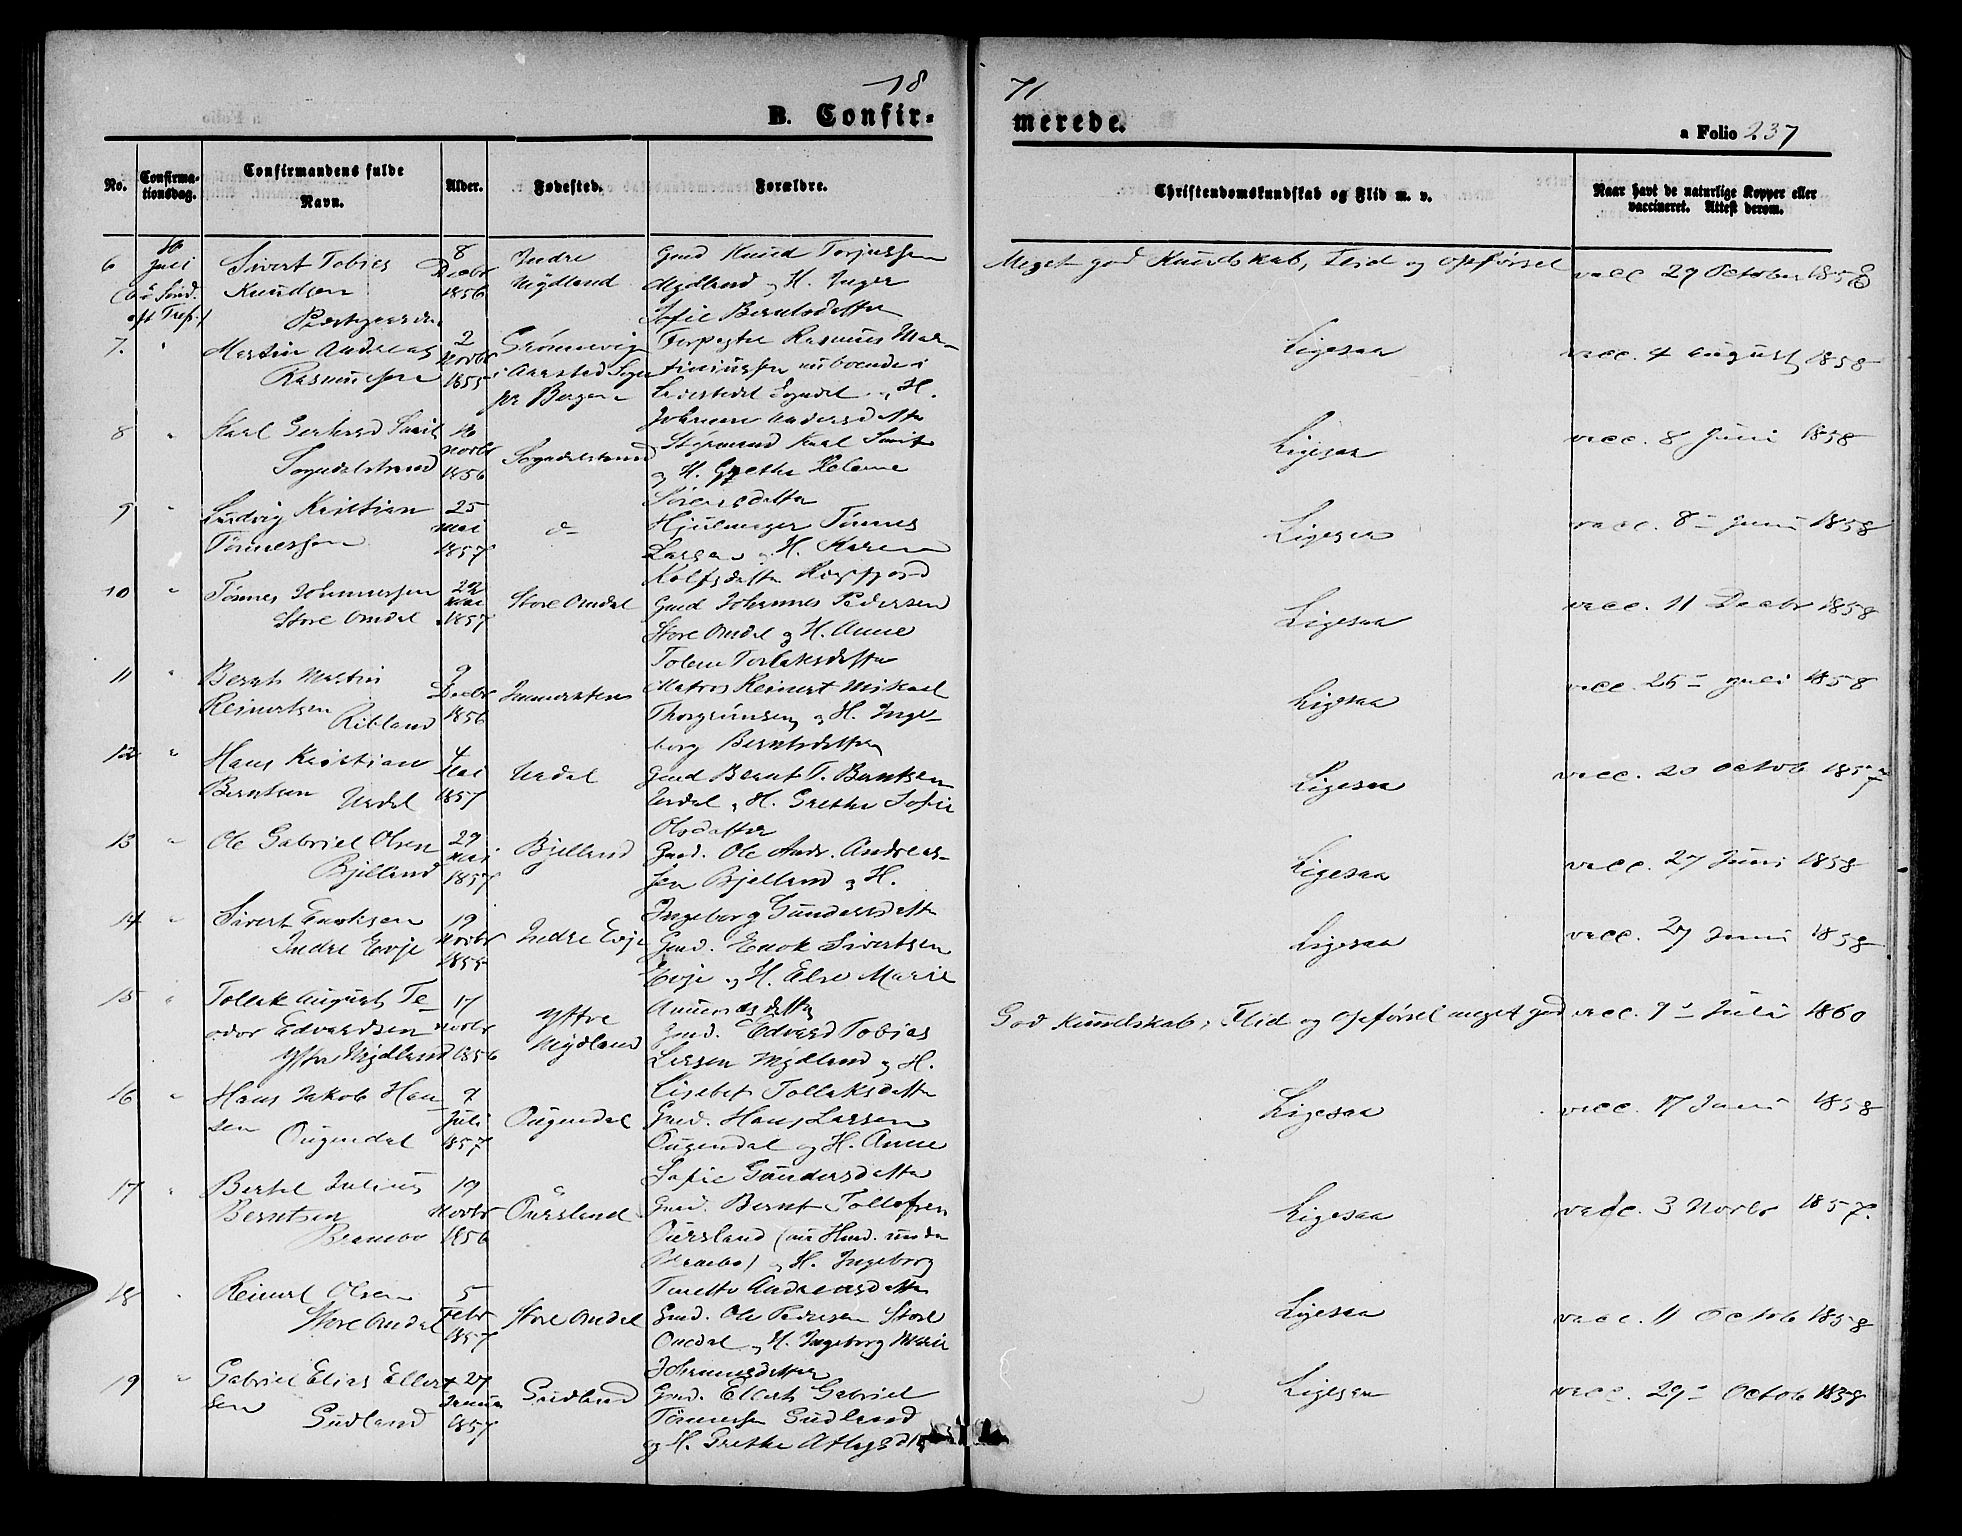 18 71
B. Confirmerede.
a Folio 237
No. Confirmationsdag. Confirmandens fulde Navn. Alder. Fødested. Forældre. Christendomskundskab og Flid m. v. Naar havt de naturlige Kopper eller vaccineret. Attest derom.
6 16 Juli Sivert Tobias 8 Indre Gmd Knud Torjussen Meget god Kundskab, Flid og Opførsel vacc 29 October 1858
Knudsen Decbr Mydland Mydland og H. Inger
1856 Sofie Berntsdatter
7. " Martin Andreas 2 Grønnevig Rasmus Mar- Ligesaa vacc. 4 August 1858
Rasmussen Novbr i Aarstad Sogn tiniussen nu boende i
1855 pr Bergen Sogndal og H.
Johanne Andersdatter
8 " Karl Gerhard 16 Sogndalstrand Styrmand Karl Ligesaa vacc. 8 Juni 1858
Sogndalstrand Novbr og H. Grethe Helene
1856 Sørensdatter
9 " Ludvig Kristian 25 do Hjulmager Tønnes Ligesaa vacc. 8de Juni 1858
Tønnessen Mai Larsen og H. Karen
1857 Rolfsdatter
10 " Tønnes Johannessen 22 Store Omdal Gmd Johannes Pedersen Ligesaa vacc. 11 Decbr 1858
Store Omdal Mai Store Omdal og H. Anne
1857 Torlaksdatter
11 " Bernt Martin 9 Immerstens Matros Reinert Mikael Ligesaa vacc. 26de Juli 1858
Reinertsen Decbr Thorgrimsen og H. Inge-
Ribland 1856 borg Berntsdatter
12 " Hans Kristian 4 Urdal Gmd Bernt T. Berntsen Ligesaa vacc. 20 Octob 1857
Berntsen Mai Urdal og H. Grethe Sofie
Urdal 1857 Olsdatter
13 " Ole Gabriel Olsen 29 Bjelland Gmd. Ole Andr. Andreas- Ligesaa vacc. 27 Juni 1858
Bjelland Mai sen Bjelland og H.
1857 Ingeborg Gundersdatter
14 " Sivert Enoksen 19 Indre Evje Gmd. Enok Sivertsen Ligesaa vacc. 27 Juni 1858
Indre Evje Novbr Evje og H. Else Marie
1855
15 " Tollak August Te- 17 Yttre Gmd. Edvard Tobias God Kundskab, Flid og Opførsel meget god vacc. 9de Juli 1860
odor Edvardsen Novbr Mydland Larsen Mydland og H.
Yttre Mydland 1856 Lisebet Tollaksdatter
16 " Hans Jakob Han- 7 Ougendal Gmd. Hans Larsen Ligesaa vacc. 17 Juni 1858
sen Juli Ougendal og H. Anne
Ougendal 1857 Sofie Gundersdatter
17 " Bertel Julius 19 Ouersland Gmd. Bernt Tollefsen Ligesaa vacc. 3 Novbr 1857.
Berntsen Novbr Ouersland (nu Hmd. under
Brambo 1856 Brambo) og H. Ingeborg
Andreasdatter
18 " Reinert Olsen 5 Store Omdal Gmd. Ole Pedersen Store Ligesaa vacc. 11 Octob 1858
Store Omdal Febr Omdal og H. Ingeborg Marie
1857 Johannesdatter
19 " Gabriel Elias Ellert- 27 Gudland Gmd. Ellert Gabriel Ligesaa vacc. 29de Octob 1858
sen Januar Tønnessen Gudland
Gudland 1857 og H. Grethe